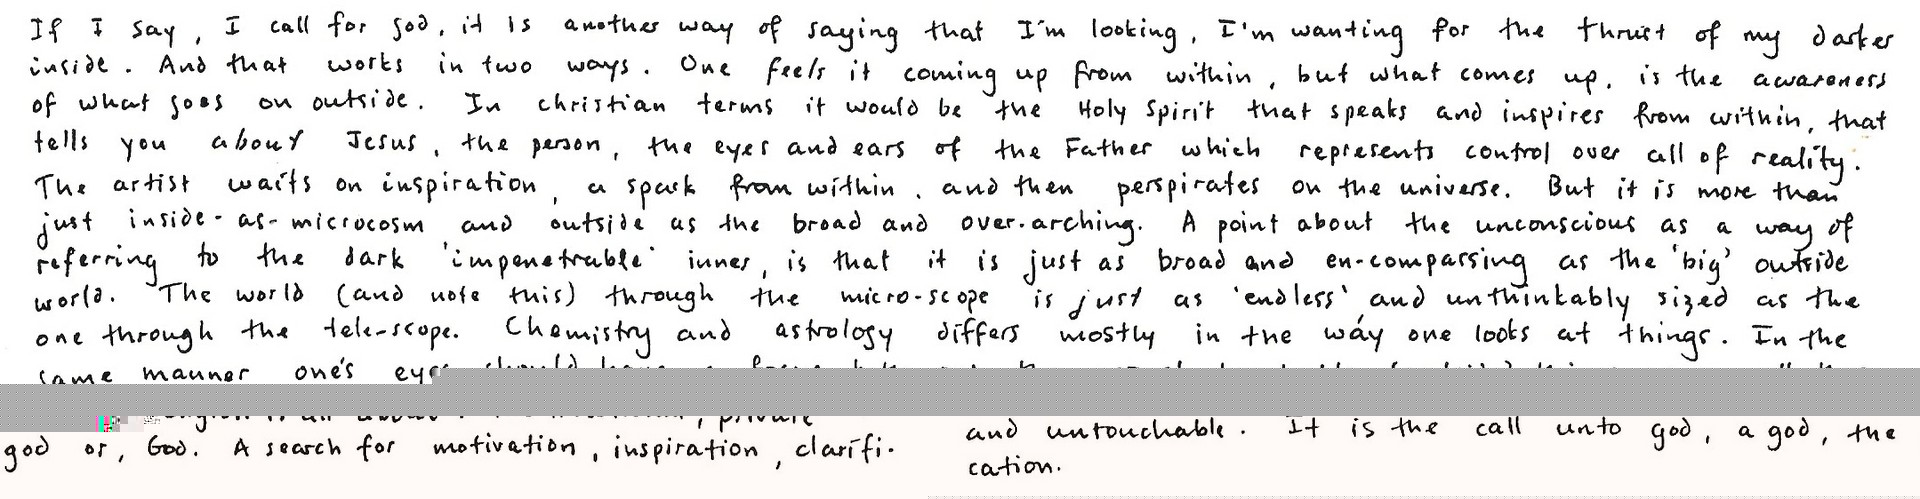 If I say, I call for god, it is another way of saying that I'm looking, I'm wanting for the thrust of my darker
inside. And that works in two ways. One feels it coming up from within, but what comes up, is the awareness
of what goes on outside. In christian terms it would be the Holy Spirit that speaks and inspires from within, that
tells you about Jesus, the person, the eyes and ears of the Father which represents control over all of reality.
The artist waits on inspiration, a spark from within, and then perspirates on the universe. But it is more than
just inside-as-microcosm and outside as the broad and over-arching. A point about the unconscious as a way of
referring to the dark 'impenetrable' inner, is that it is just as broad and en-compassing as the 'big' outside
world. The world (and note this) through the micro-scope is just as 'endless' and unthinkably sized as the
one through the tele-scope. Chemistry and astrology differs mostly in the way one looks at things. In the
same manner one's eyes should have
private
and untouchable. It is the call unto god, a god, the
god or, God. A search for motivation, inspiration, clarifi-
cation.